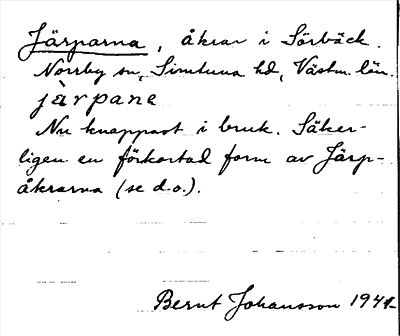 Järparna, åkrar i Sörbäck.
Norrby sn, Simtuna hd, Västm. län.
jàrpane
Nu knappast i bruk. Säker-
ligen en förkortad form av Järp-
åkrarna (se d.o.).
Bernt Johansson 1941